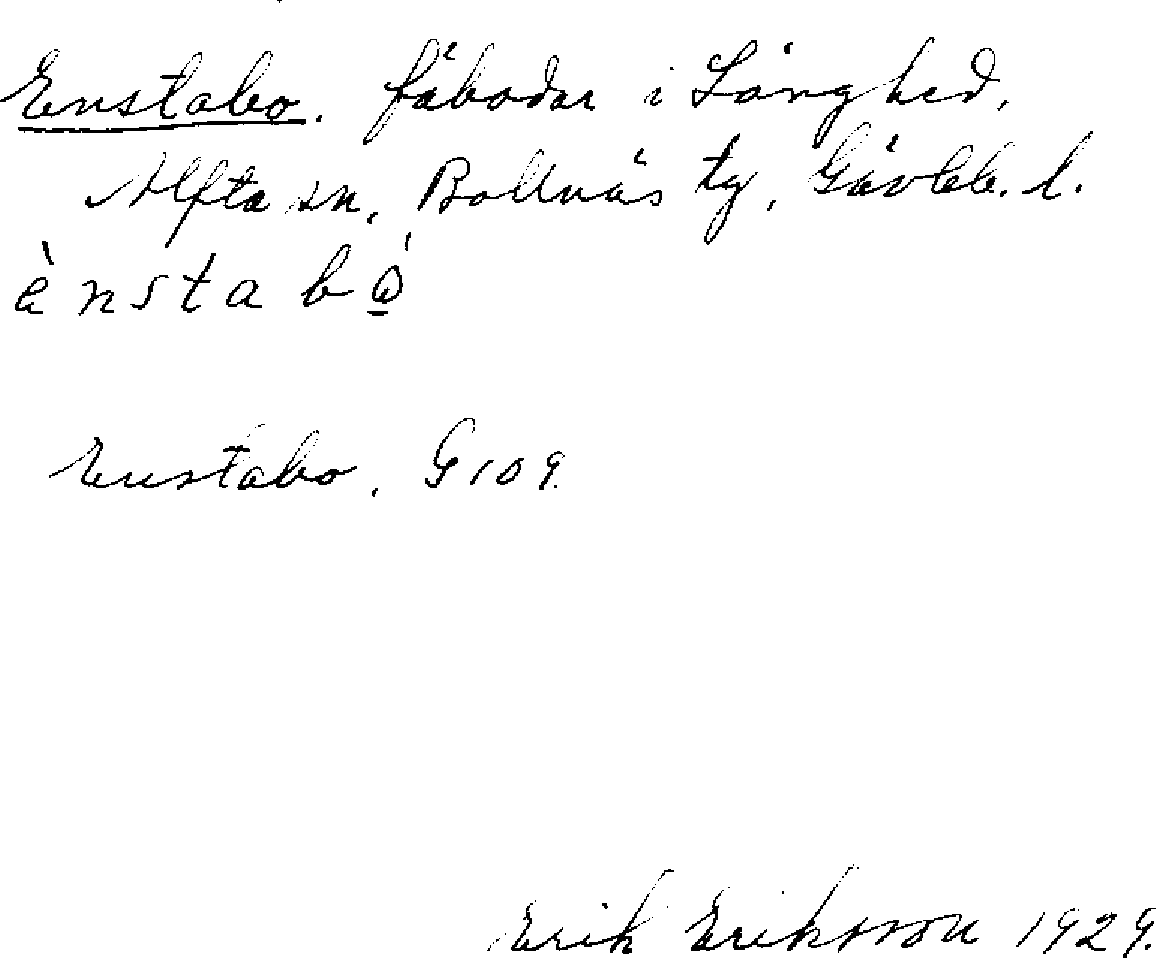 Enstabo. fäbodar i Långhed,
Alfta sn, Bollnäs tg, Gävleb. l.
ènstabọ́
Enstabo, G 109.
Erik Eriksson 1929.